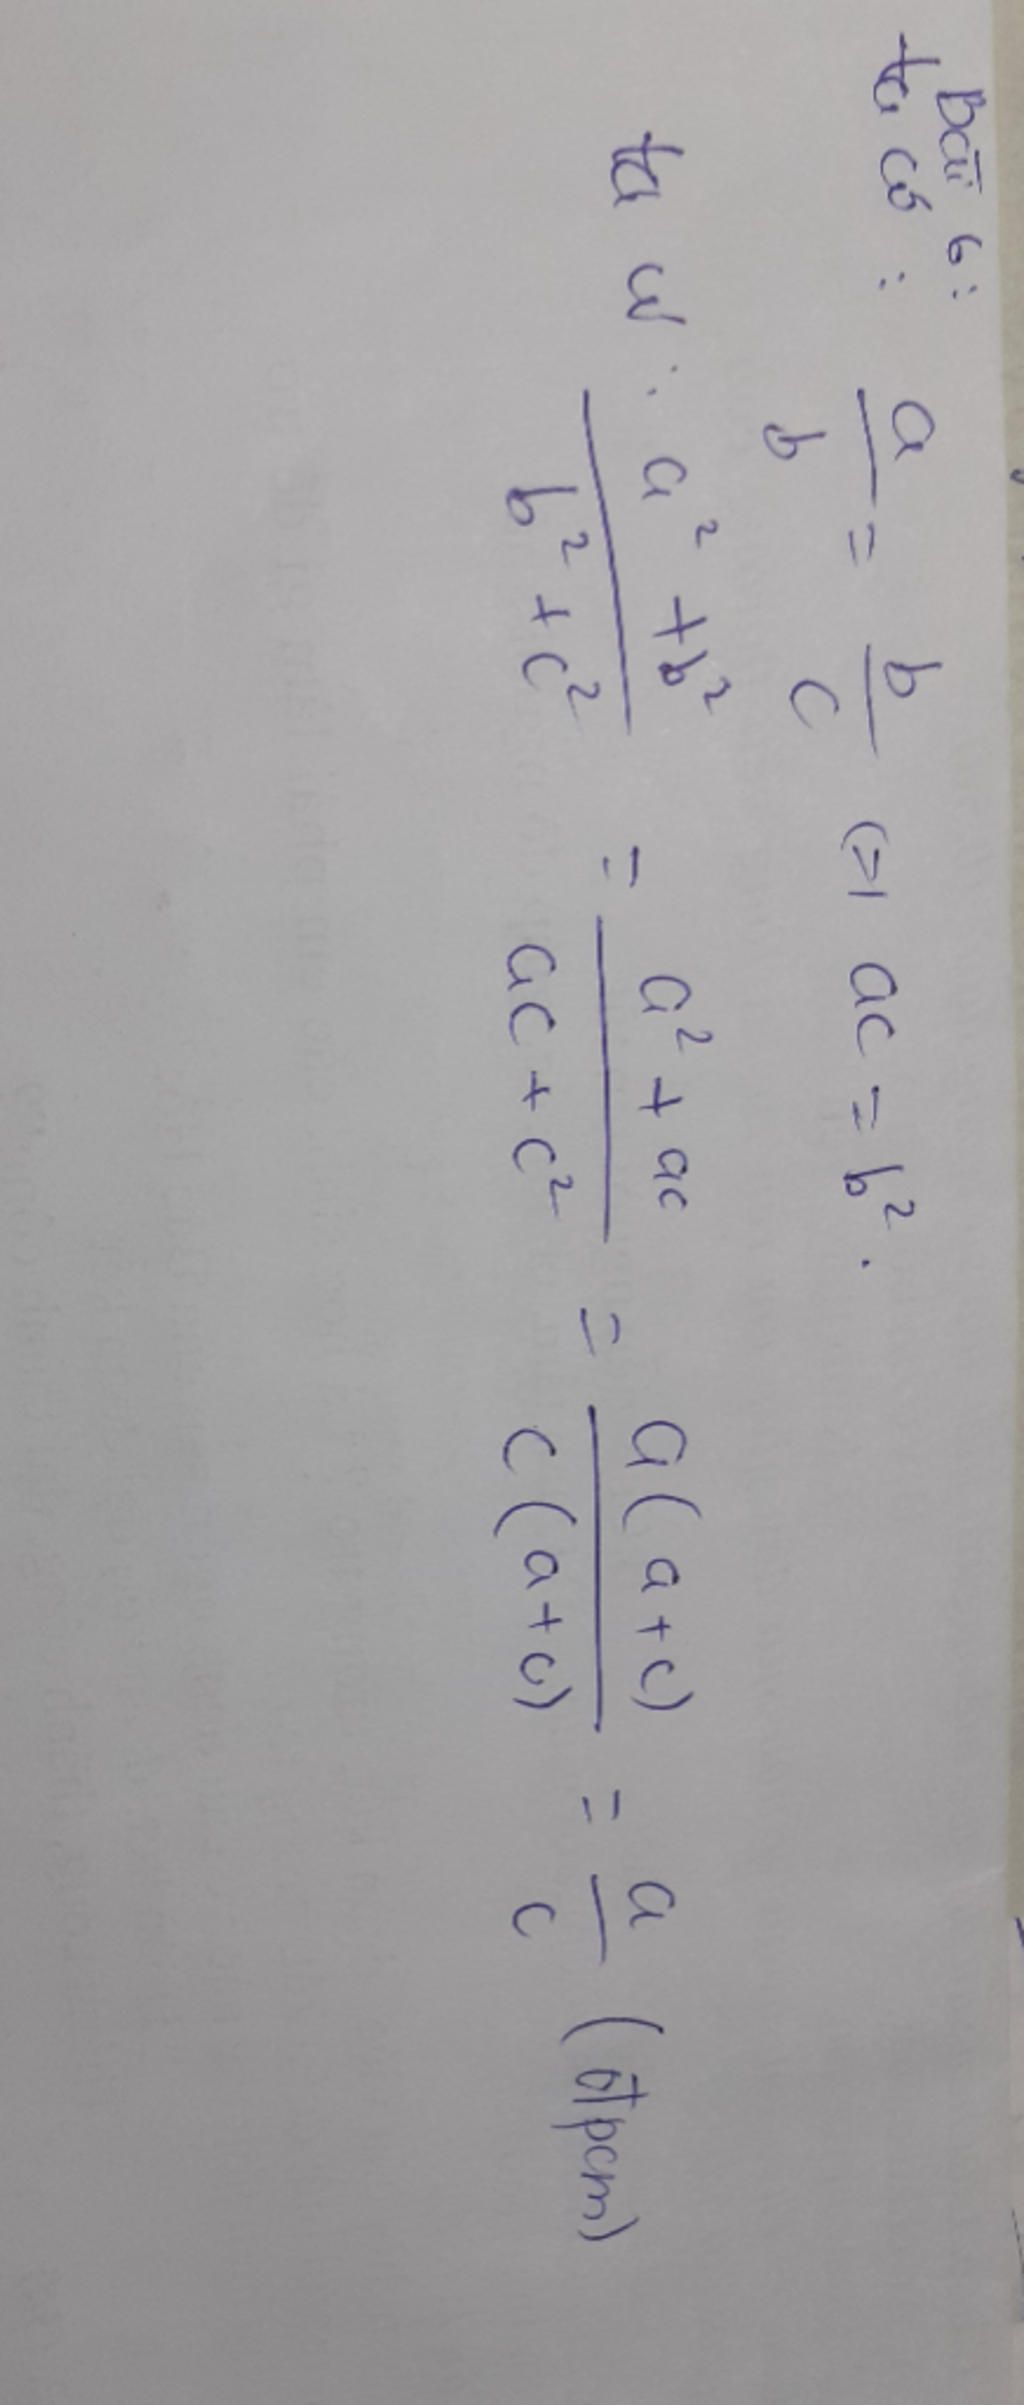 Bài 6:
ta có : a/b = b/c (=) ac = b².
ta có : (a² + b²)/(b² + c²) = (a² + ac)/(ac + c²) = a(a+c)/c(a+c) = a/c (đpcm)